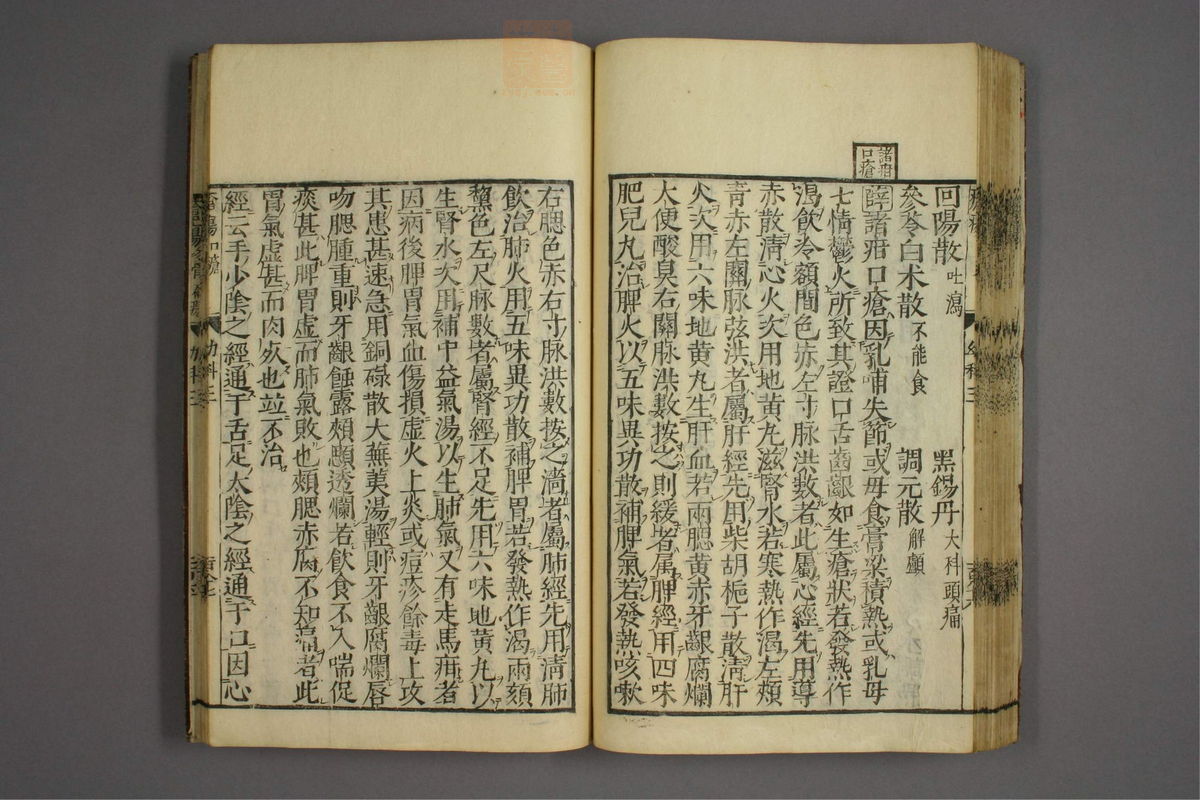 諸疳
口瘡
回陽散吐瀉 黑錫丹大科頭痛
參苓白术散不能食 調元散解顱
薛諸疳口瘡因乳哺失節或母食膏粱積熱或乳母
七情鬱火所致其證口舌齒齦如生瘡狀若發熱作
渴飲冷額間色赤左寸脉洪數者此屬心經先用導
赤散淸心火次用地黄丸滋腎水若寒熱作渴左頰
青赤左關脉弦洪者屬肝經先用柴胡梔子散淸肝
火次用六味地黄丸生肝血若兩腮黄赤牙齦腐爛
大便酸臭右關脉洪數按之則緩者屬脾經用四味
肥兒丸治脾火以五味異功散補脾氣若發熱咳嗽
右腮色赤右寸脉洪數按之濇者屬肺經先用淸肺
飲治肺火用五味異功散補脾胃若發熱作渴兩頦
黧色左尺脉數者屬腎經不足先用六味地黄丸以
生腎水次用補中益氣湯以生肺氣又有走馬疳者
因病後脾胃氣血傷損虛火上炎或痘疹餘毒上攻
其患甚速急用銅碌散大蕪荑湯輕則牙齦腐爛唇
吻腮腫重則牙齦蝕露頰顋透爛若飲食不入喘促
痰甚此脾胃虛而肺氣敗也頰腮赤腐不知痛者此
胃氣虛甚而肉死也竝不治
經云手少陰之經通于舌足太陰之經通于口因心
瘡瘍口瘡
幼科三